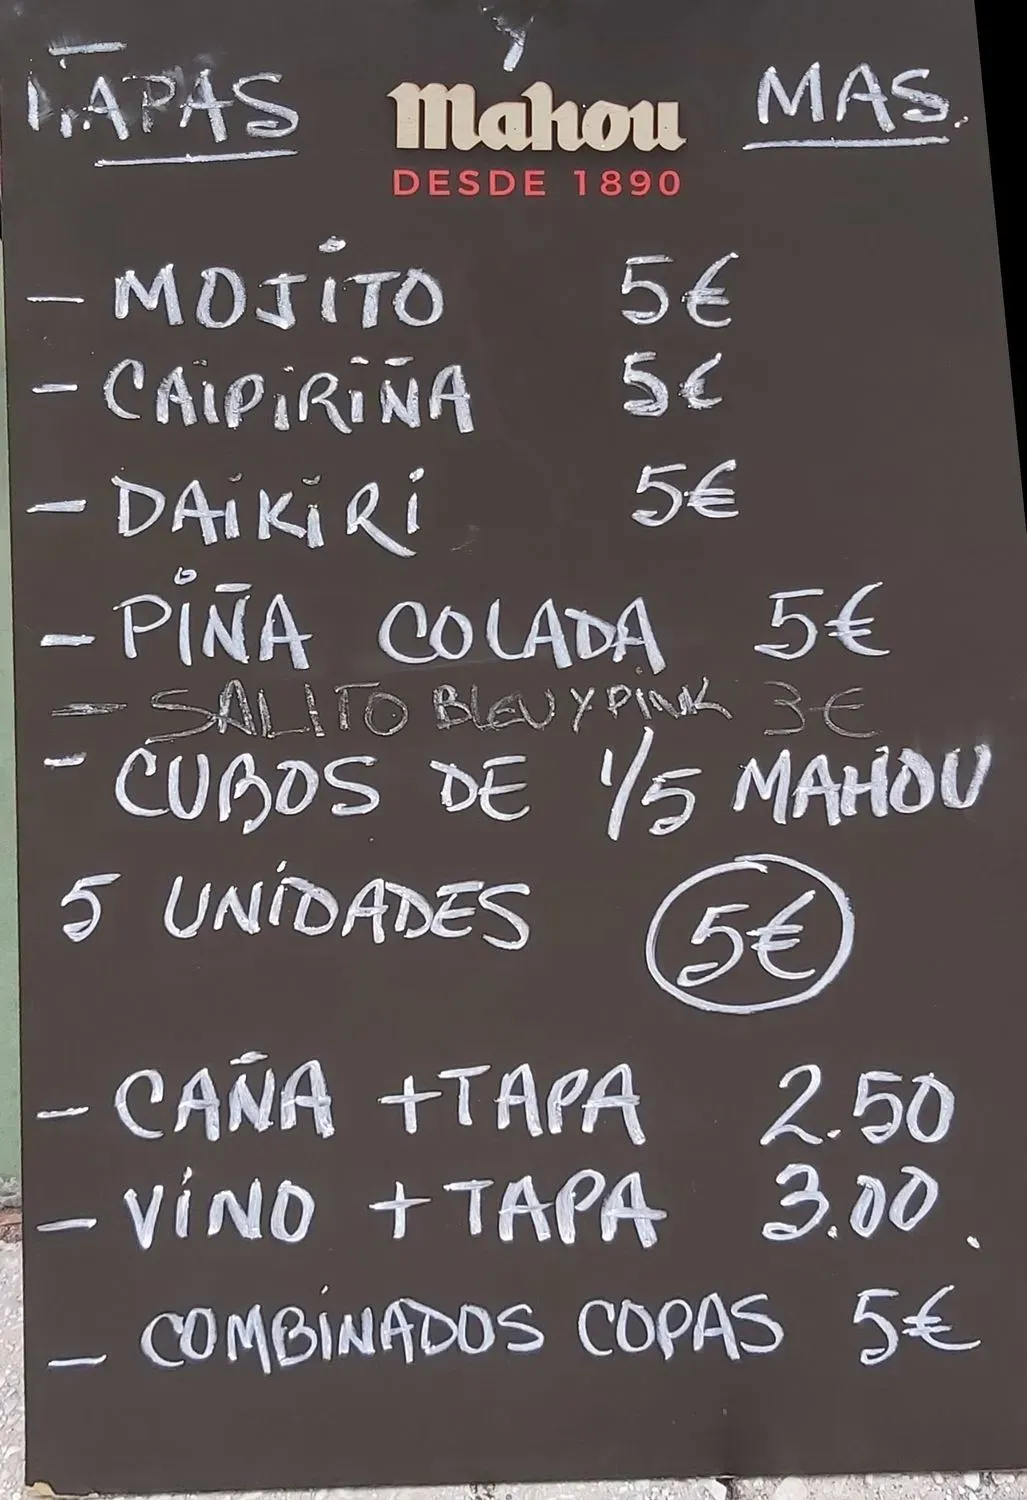 TAPAS y MAS.
Mahou
DESDE 1890
- MOJITO 5€
- CAIPIRIÑA 5€
- DAIKIRI 5€
- PIÑA COLADA 5€
- SALITO BLEU Y PINK 3€
- CUBOS DE 1/5 MAHOU
5 UNIDADES 5€
- CAÑA + TAPA 2.50
- VINO + TAPA 3.00.
- COMBINADOS COPAS 5€